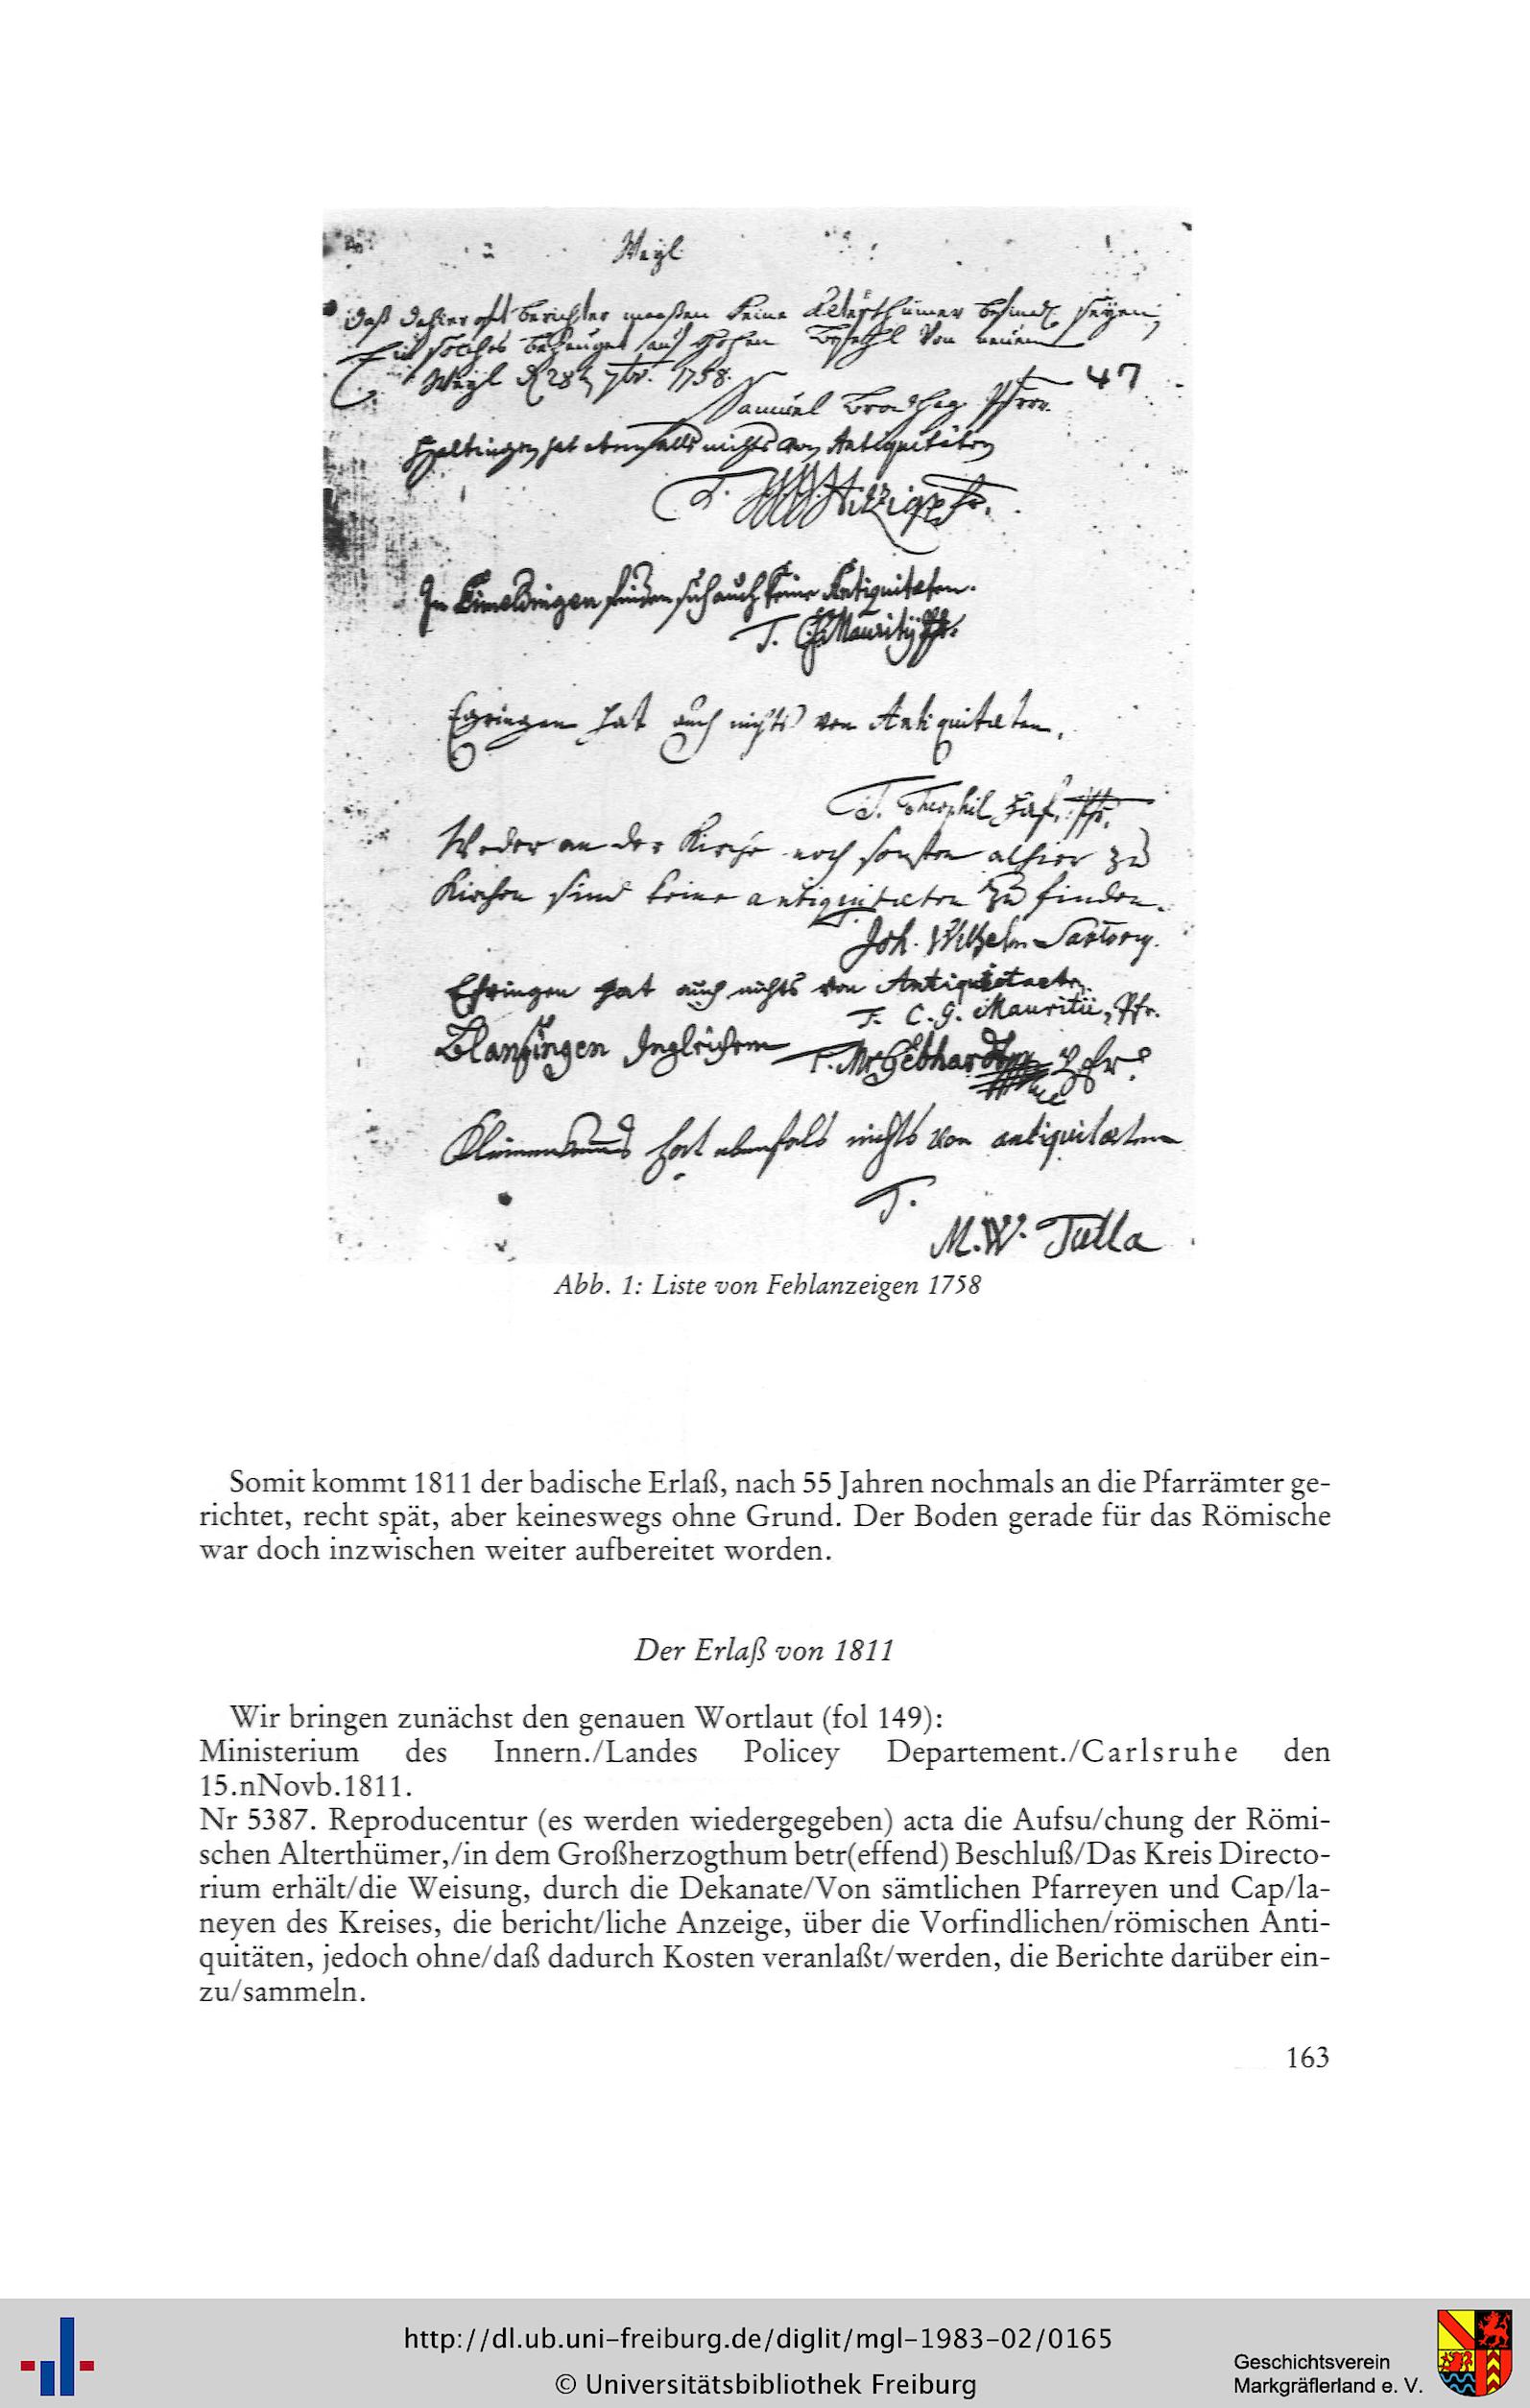 Weyl
Daß dahier oft berichter maaßen keine Alterthümer befindl. seyen,
Ein solches bezeuget auf hohen Befehl von neuem
Weyl d 28 7br. 1758.
47
Samuel Pfrr.
Haltingen hat ebenfalls nichts von Antiquitäten
T. Hitzig Pfr.
In Eimeldingen finden sich auch keine Antiquitaeten.
T. C. G. Mauritii Pfr.
Egringen hat auch nichts von Antiquitaeten.
T. Theophil Pfr.
Weder an der Kirche noch sonsten alhier zu
Kirchen sind keine antiquitaeten zu finden.
T.
Joh. Wilhelm Sartory.
Efringen hat auch nichts von Antiquitaeten
T. C. G. Mauritii, Pfr.
Blansingen Ingleichem T. M. Gebhardt Pfr.
Kleinenkems hat ebenfals nichts von antiquitaeten
T.
M. W. Tulla
Abb. 1: Liste von Fehlanzeigen 1758
Somit kommt 1811 der badische Erlaß, nach 55 Jahren nochmals an die Pfarrämter ge-
richtet, recht spät, aber keineswegs ohne Grund. Der Boden gerade für das Römische
war doch inzwischen weiter aufbereitet worden.
Der Erlaß von 1811
Wir bringen zunächst den genauen Wortlaut (fol 149):
Ministerium des Innern./Landes Policey Departement./Carlsruhe den
15.nNovb.1811.
Nr 5387. Reproducentur (es werden wiedergegeben) acta die Aufsu/chung der Römi-
schen Alterthümer,/in dem Großherzogthum betr(effend) Beschluß/Das Kreis Directo-
rium erhält/die Weisung, durch die Dekanate/Von sämtlichen Pfarreyen und Cap/la-
neyen des Kreises, die bericht/liche Anzeige, über die Vorfindlichen/römischen Anti-
quitäten, jedoch ohne/daß dadurch Kosten veranlaßt/werden, die Berichte darüber ein-
zu/sammeln.
163
http://dl.ub.uni-freiburg.de/diglit/mgl-1983-02/0165
© Universitätsbibliothek Freiburg
Geschichtsverein
Markgräflerland e. V.